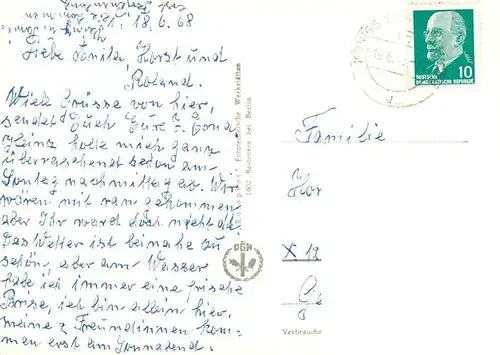 18.6.68
Liebe Sonita, Horst und
Roland.
Viele Grüsse von hier,
sendet Euch Eure
Heinz holte mich ganz
überraschend schon am
Sontag nachmittag ab. Wir
wären mit ran gekommen
aber Ihr ward doch nicht da
Das Wetter ist beinahe zu
schön, aber am Wasser
habe ich immer eine frische
Brise, ich bin allein hier,
meine 2 Freundinnen kom-
men erst am Sonnabend.
Fototechnische Werkstätten
bei Berlin
PGH
10
DEUTSCHE
DEMOKRATISCHE REPUBLIK
Familie
Hor
X 12
Verbrauche